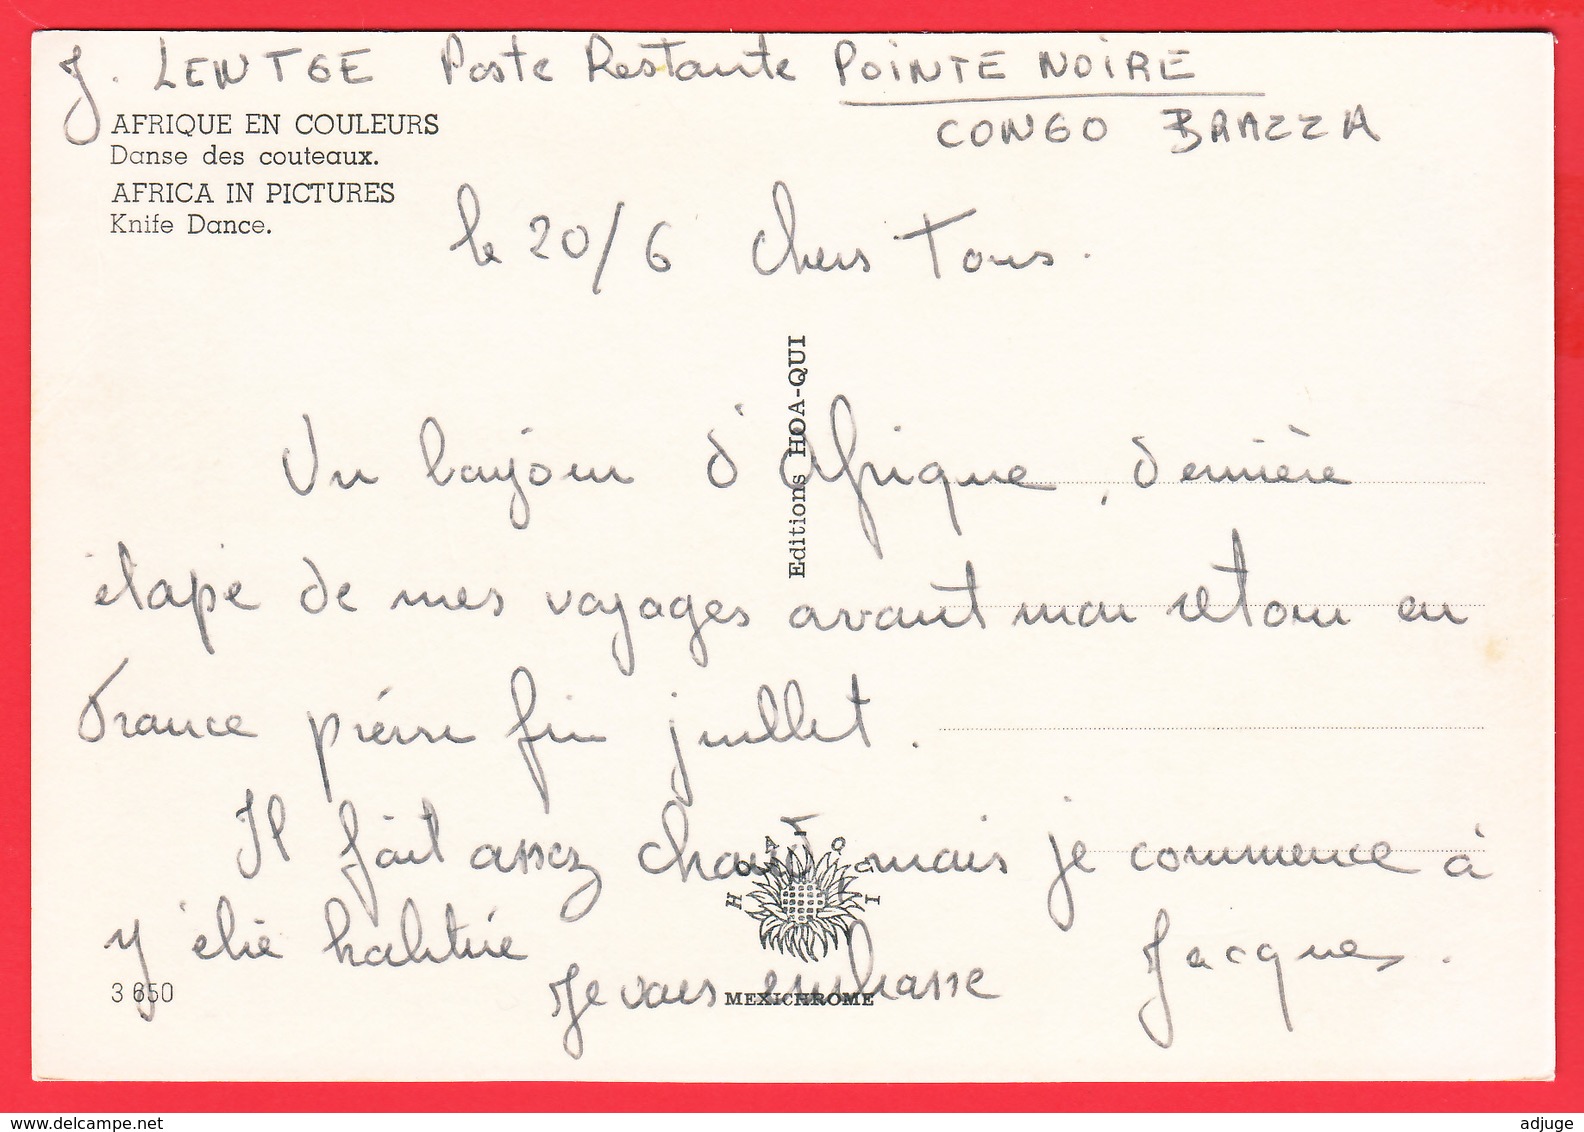 J. LENTGE Poste Restante POINTE NOIRE
CONGO BRAZZA
AFRIQUE EN COULEURS
Danse des couteaux.
AFRICA IN PICTURES
Knife Dance.
le 20/6 Chers Tous.
Un bonjour d'Afrique, dernière
étape de mes voyages avant mon retour en
France prévu fin juillet.
Il fait assez chaud mais je commence à
y être habitué
Je vous embrasse Jacques.
Editions HOA-QUI
HOA-QUI
MEXICHROME
3 650
www.delcampe.net
adjuge